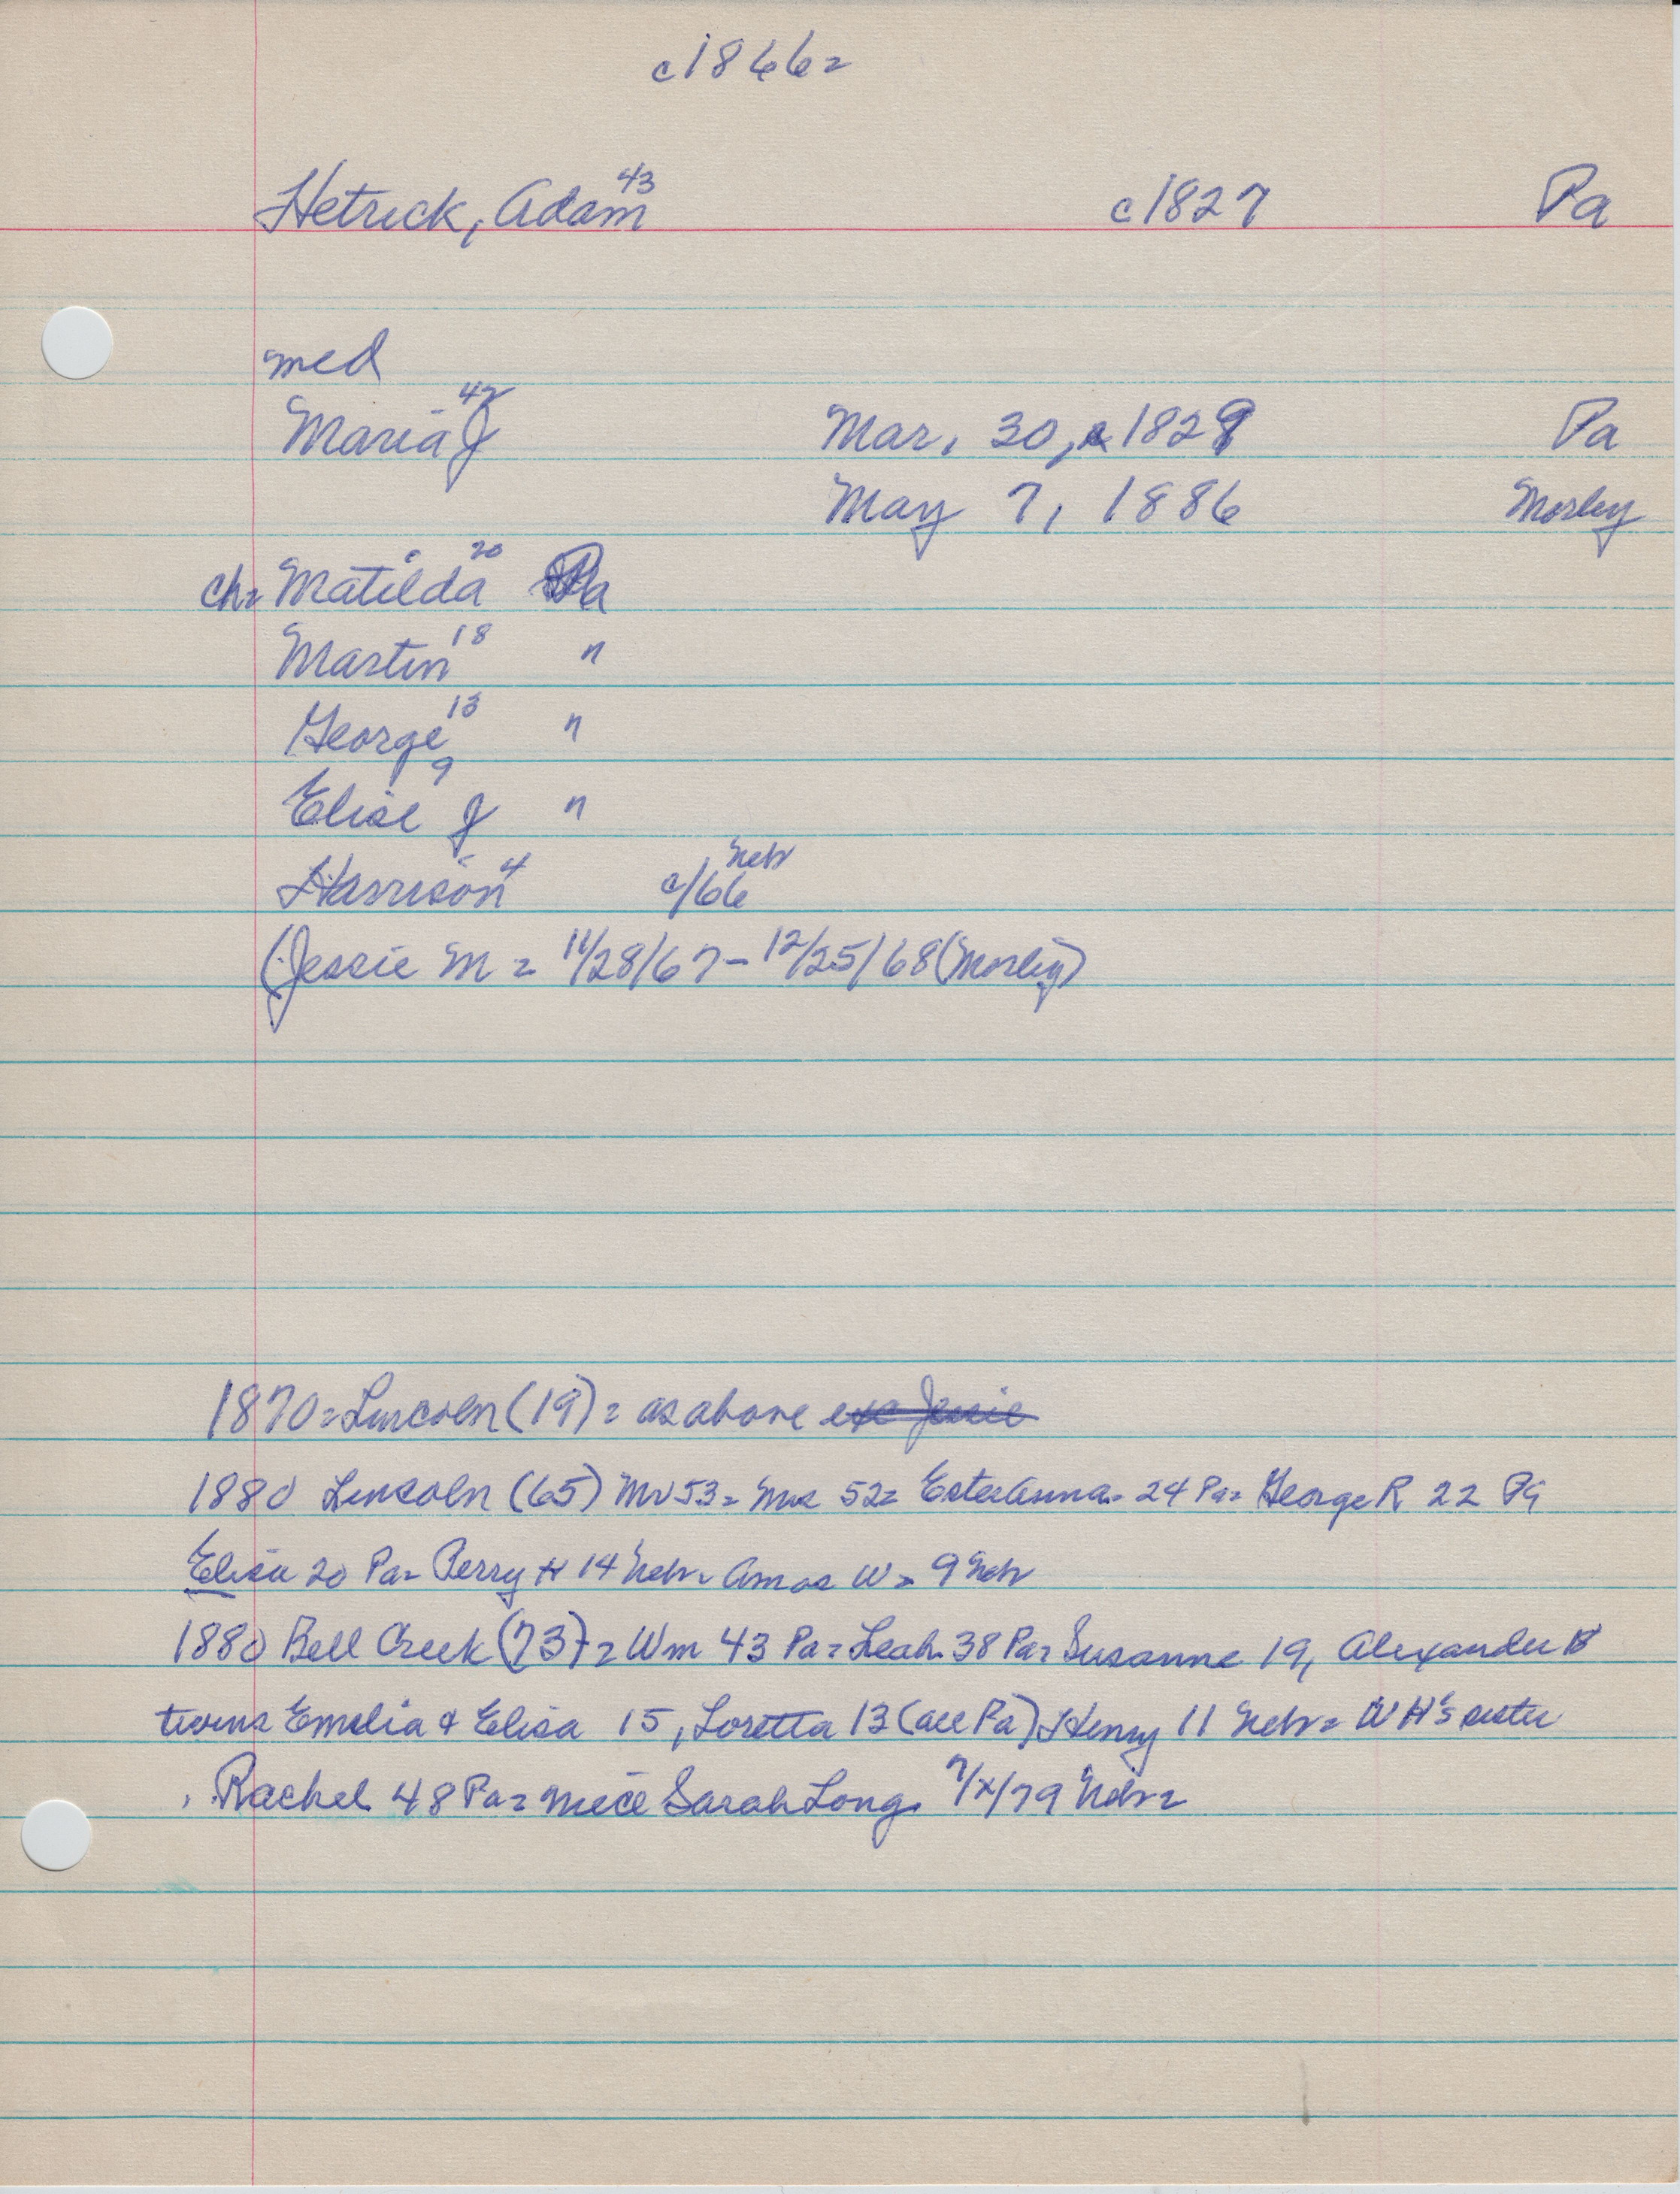 c1866=
Hetrick, Adam 43 c1827 Pa
med
Maria J 42 Mar. 30, 1828 Pa
May 7, 1886 Morley
ch= Matilda 20 Pa
Martin 18 "
George 13 "
Elise J 9 "
Harrison 4 c/66 Nebr
(Jessie M = 11/28/67 - 12/25/68 (Morley)
1870= Lincoln (19) = as above exc Jessie
1880 Lincoln (65) Mr 53= Mrs 52= Ester Anna= 24 Pa= George R 22 Pa
Elisa 20 Pa= Perry H 14 Nebr= Amos W= 9 Nebr
1880 Bell Creek (73)= Wm 43 Pa= Leah 38 Pa= Susanne 19, Alexander B
twins Emelia & Elisa 15, Loretta 13 (all Pa) Henry 11 Nebr= WH's sister
Rachel 48 Pa= niece Sarah Long 7/x/79 Nebr=